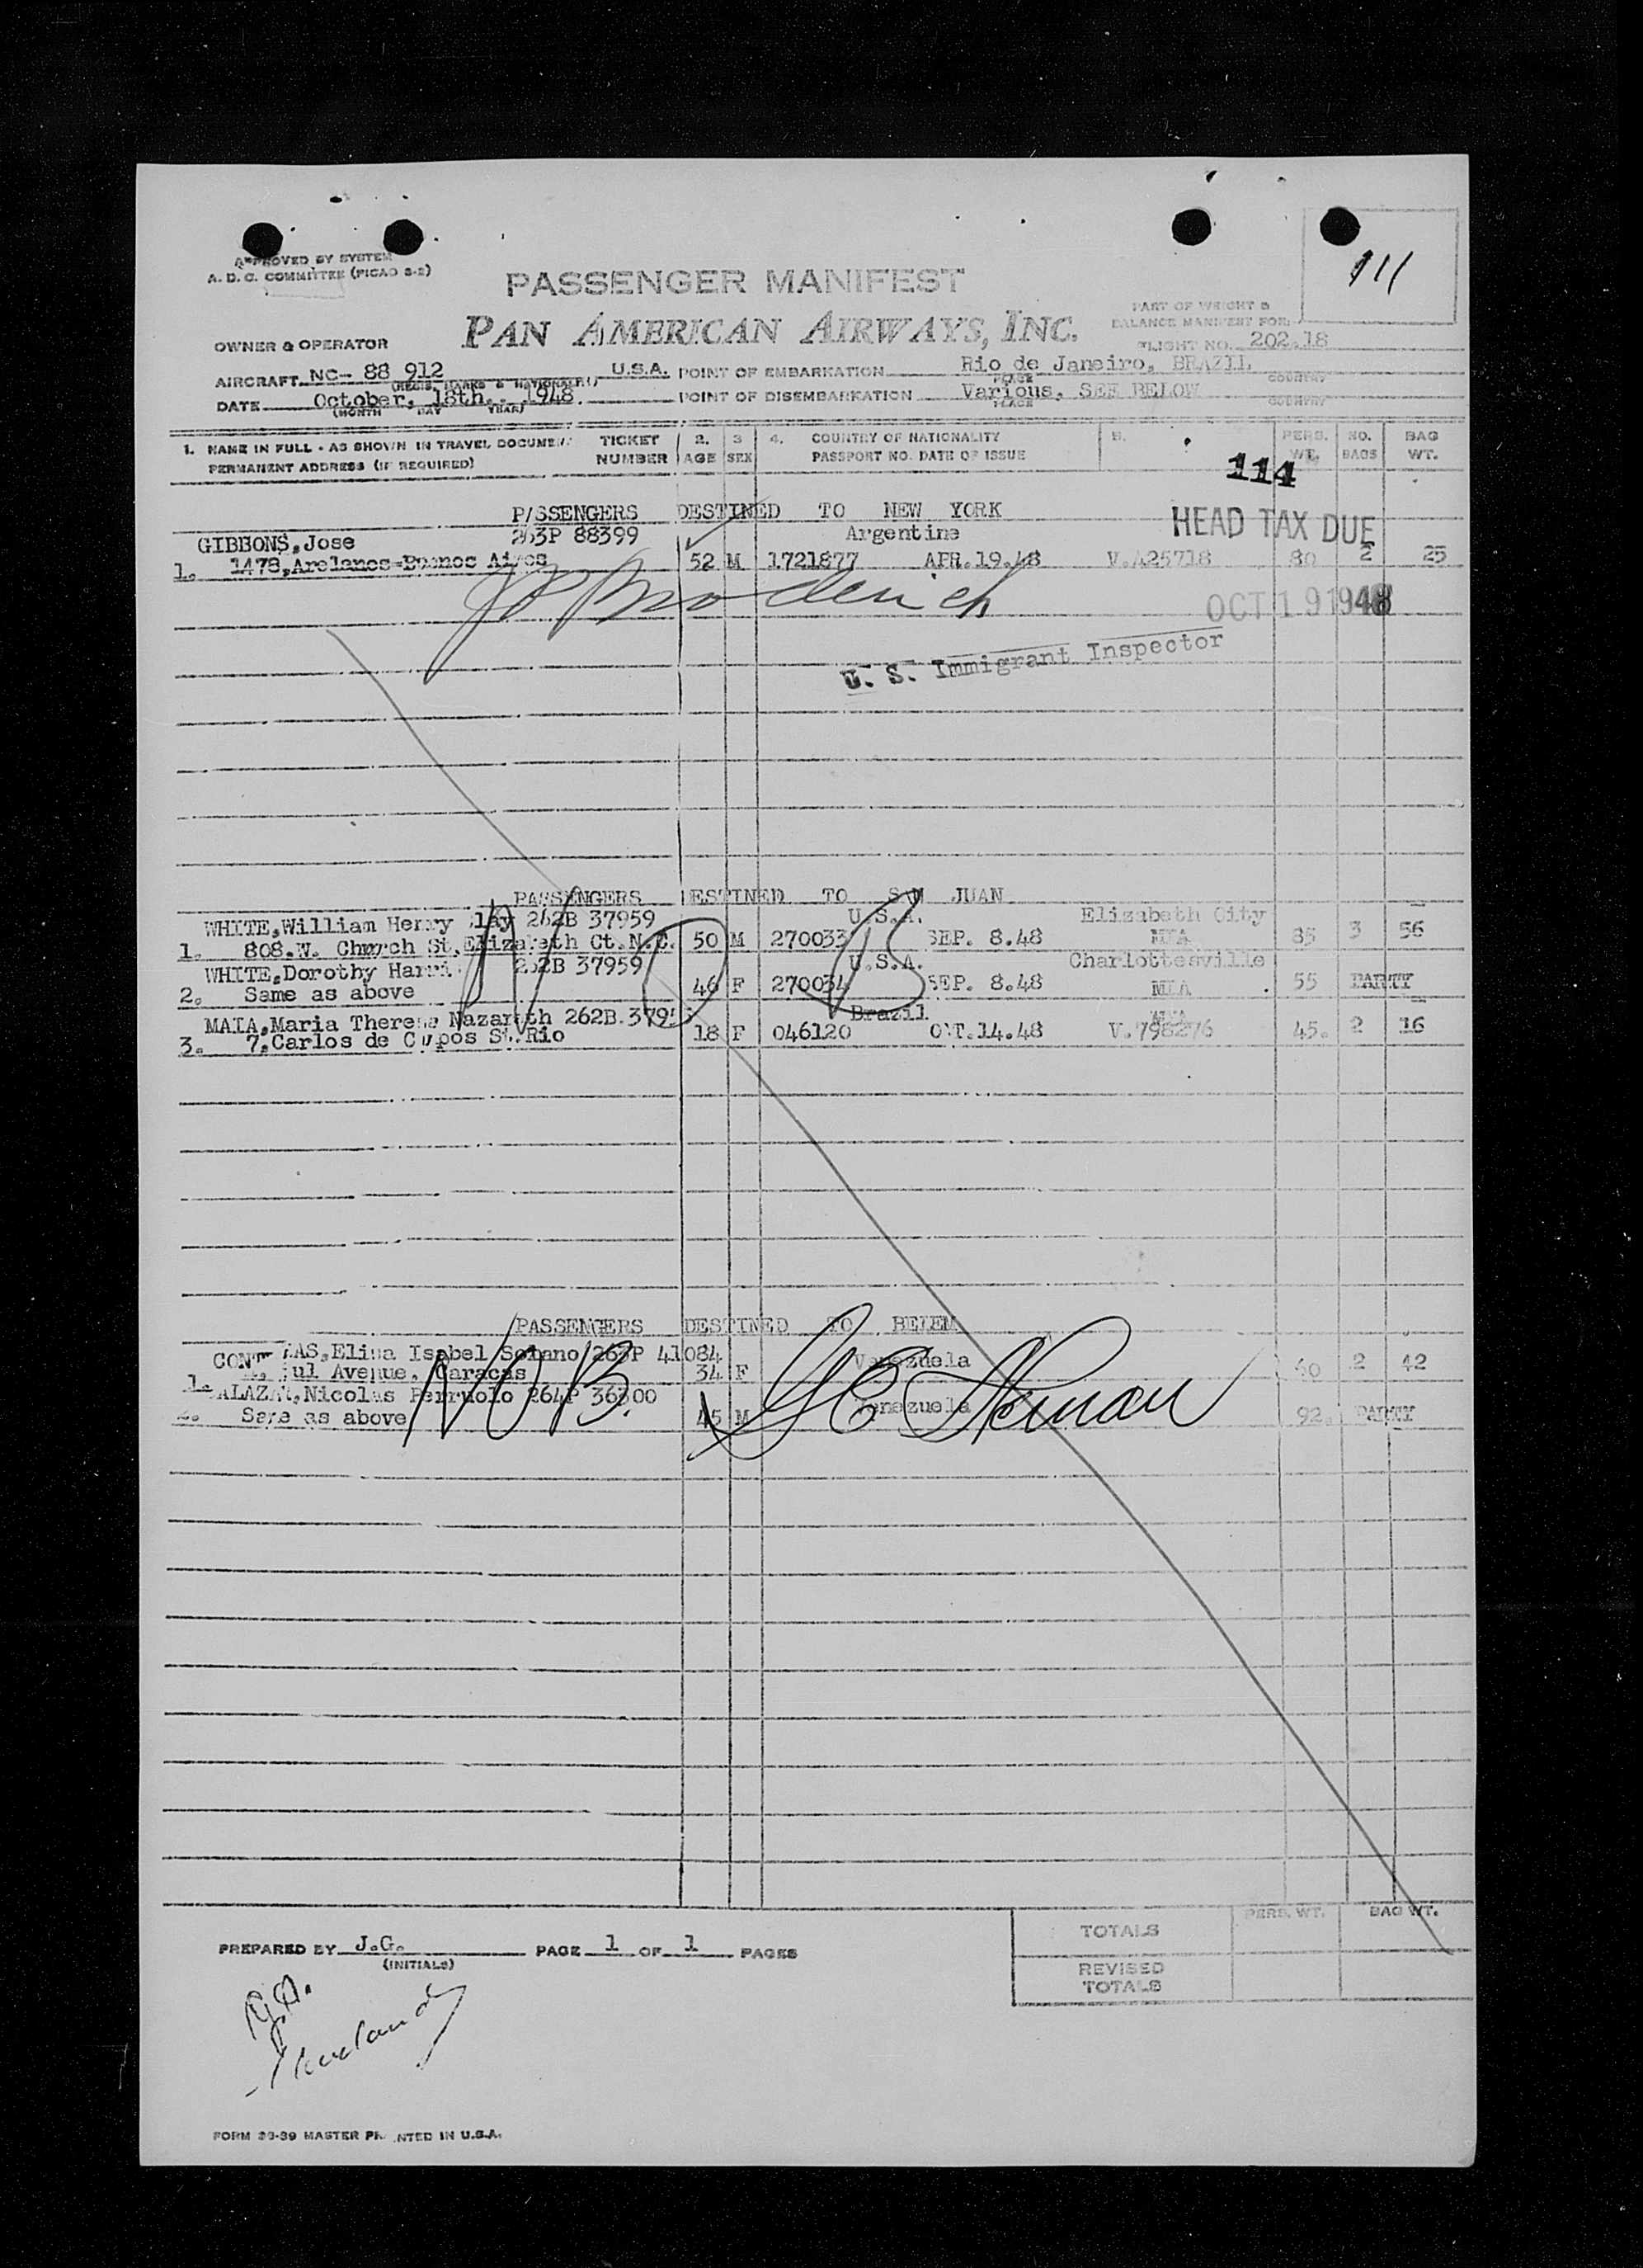 APPROVED BY SYSTEM
A. D. C. COMMITTEE (PICAO S-2)
111
PASSENGER MANIFEST
PART OF WEIGHT &
BALANCE MANIFEST FOR:
PAN AMERICAN AIRWAYS, INC.
OWNER & OPERATOR
FLIGHT NO. 202.18
AIRCRAFT NC- 88 912 U.S.A. POINT OF EMBARKATION Rio de Janeiro, BRAZIL
(REGIS. MARKS & NATIONALITY) PLACE COUNTRY
DATE October, 18th. 1948. POINT OF DISEMBARKATION Various, SEE BELOW
(MONTH DAY YEAR) PLACE COUNTRY
1. NAME IN FULL - AS SHOWN IN TRAVEL DOCUMENT TICKET 2. 3 4. COUNTRY OF NATIONALITY 5. PERS. NO. BAG
PERMANENT ADDRESS (IF REQUIRED) NUMBER AGE SEX PASSPORT NO. DATE OF ISSUE WT. BAGS WT.
114
PASSENGERS DESTINED TO NEW YORK
HEAD TAX DUE
GIBBONS, Jose 263P 88399 Argentine
1. 1478, Arelanos-Buenos Aires 52 M 1721877 APR.19.48 V.A25718 80 2 25
OCT 19 1948
U. S. Immigrant Inspector
PASSENGERS DESTINED TO SAN JUAN
WHITE, William Henry Clay 262B 37959 U.S.A. Elizabeth City
1. 808.W. Church St. Elizabeth Ct.N.C. 50 M 270033 SEP. 8.48 MIA 85 3 56
WHITE, Dorothy 262B 37959 U.S.A. Charlottesville
2. Same as above 46 F 270034 SEP. 8.48 MIA 55 PARTY
MAIA, Maria Theresa Nazareth 262B. Brazil MIA
3. 7, Carlos de Campos St. Rio 18 F 046120 OCT.14.48 V.798276 45. 2 16
NOB
PASSENGERS DESTINED TO BELEM
Isabel 263P 41084 Venezuela
1. Avenue, Caracas 34 F 40 2 42
Nicolas 264P 36300 Venezuela
2. Same as above 45 M 92. PARTY
NOB.
PERS. WT. BAG WT.
TOTALS
PREPARED BY J.G. PAGE 1 OF 1 PAGES
(INITIALS)
REVISED
TOTALS
FORM 39-39 MASTER PRINTED IN U.S.A.